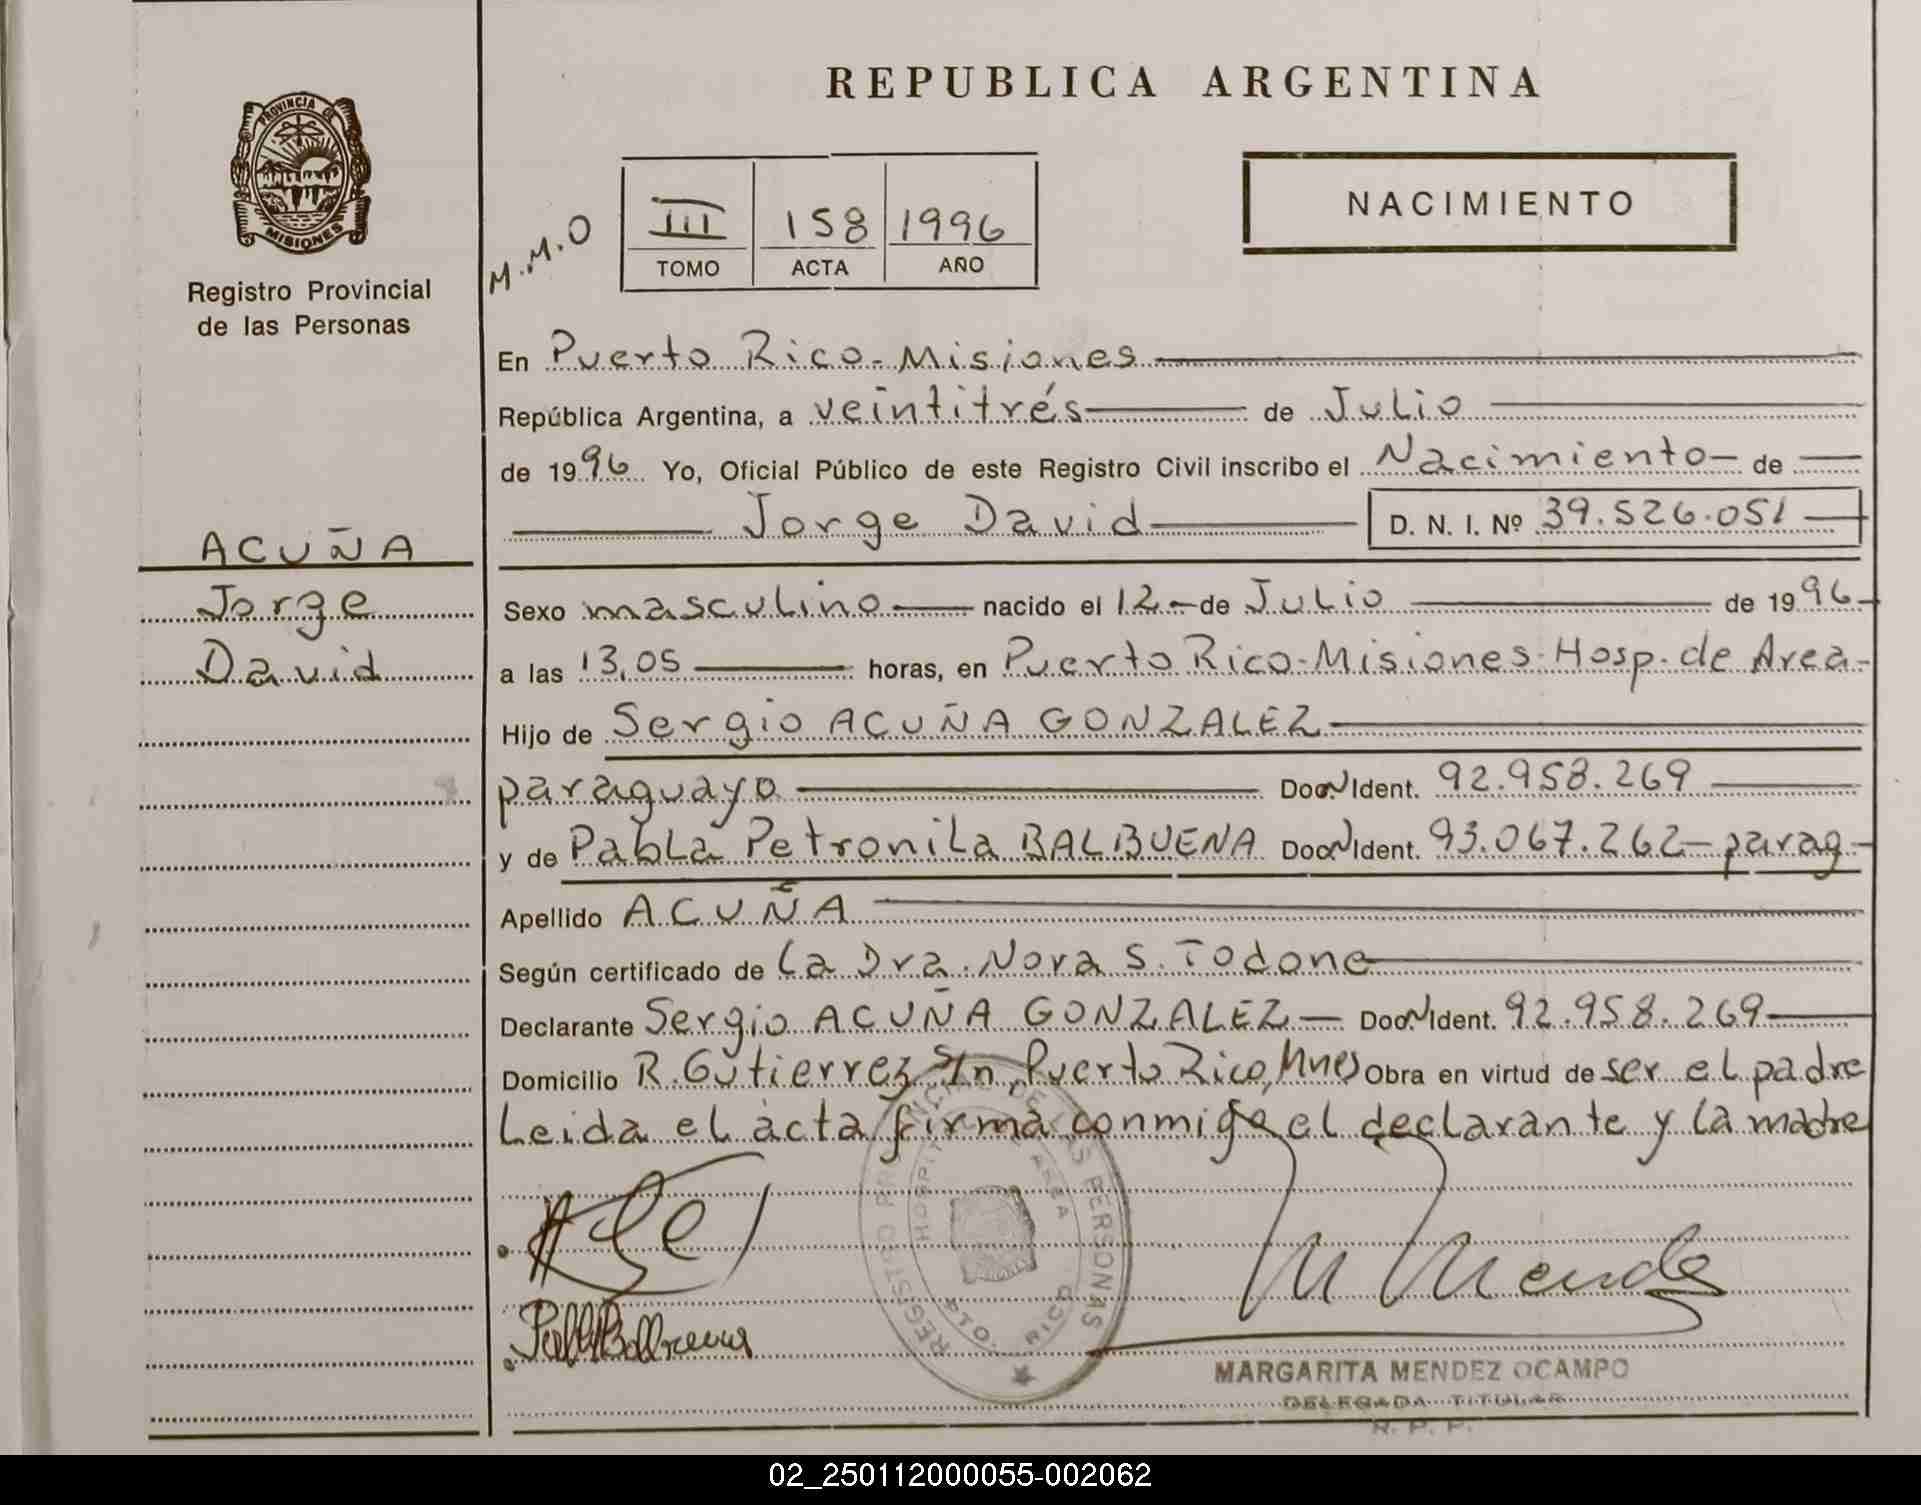 REPUBLICA ARGENTINA
PROVINCIA DE
MISIONES
Registro Provincial
de las Personas
M.M.O
III 158 1996
TOMO ACTA AÑO
NACIMIENTO
En Puerto Rico-Misiones
República Argentina, a veintitrés de Julio
de 1996 Yo, Oficial Público de este Registro Civil inscribo el Nacimiento de
Jorge David D. N. I. Nº 39.526.051
ACUÑA
Jorge
David
Sexo masculino nacido el 12 de Julio de 1996
a las 13,05 horas, en Puerto Rico-Misiones-Hosp. de Area-
Hijo de Sergio ACUÑA GONZALEZ
paraguayo Doc. N Ident. 92.958.269
y de Pabla Petronila BALBUENA Doc. N Ident. 93.067.262-parag-
Apellido ACUÑA
Según certificado de la Dra. Nora S. Todone
Declarante Sergio ACUÑA GONZALEZ Doc. N Ident. 92.958.269
Domicilio R. Gutierrez S/n, Puerto Rico, Mnes Obra en virtud de ser el padre
Leida el acta firma conmigo el declarante y la madre
REGISTRO PROVINCIAL DE LAS PERSONAS
HOSPITAL AREA
RICO
M Mendez
MARGARITA MENDEZ OCAMPO
DELEGADA TITULAR
R. P. P.
02_250112000055-002062